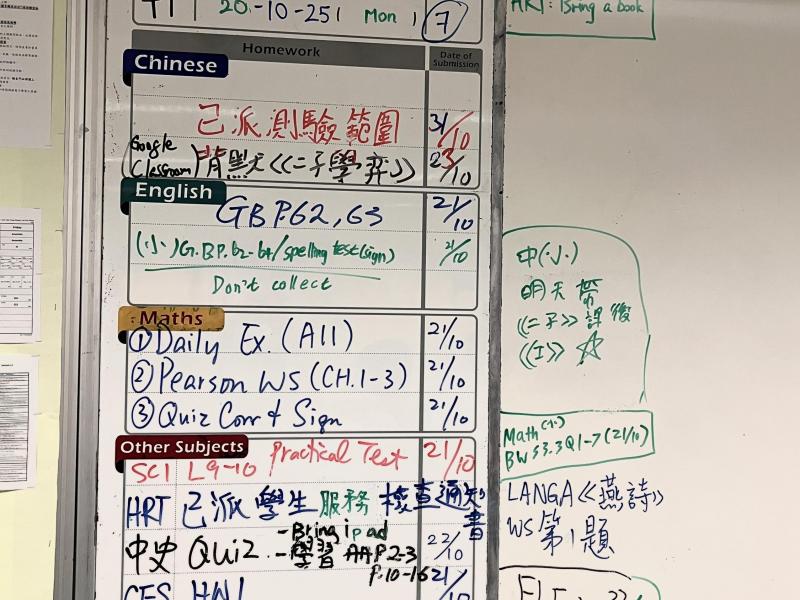 20-10-25( Mon ) 7
Homework
Date of Submission
Chinese
已派測驗範圍 31/10
Google Classroom 背默《二子學弈》 23/10
English
GB P.62, 63 21/10
(小)G.B P.62-64/spelling test(sign) 21/10
Don't collect
Maths
① Daily Ex. (All) 21/10
② Pearson WS (CH.1-3) 21/10
③ Quiz Corr & Sign 21/10
Other Subjects
SCI L9-10 Practical Test 21/10
HRT 已派學生服務檢查通知書
中史 Quiz 22/10
- Bring ipad
- 學習 P.2-3
P.10-16 21/10
CES HW1
HRT: Bring a book
中(小)
明天帶
《二子》課後
《工》☆
Math(小)
BW S3.3 Q1-7 (21/10)
LANGA《燕詩》
WS 第1題